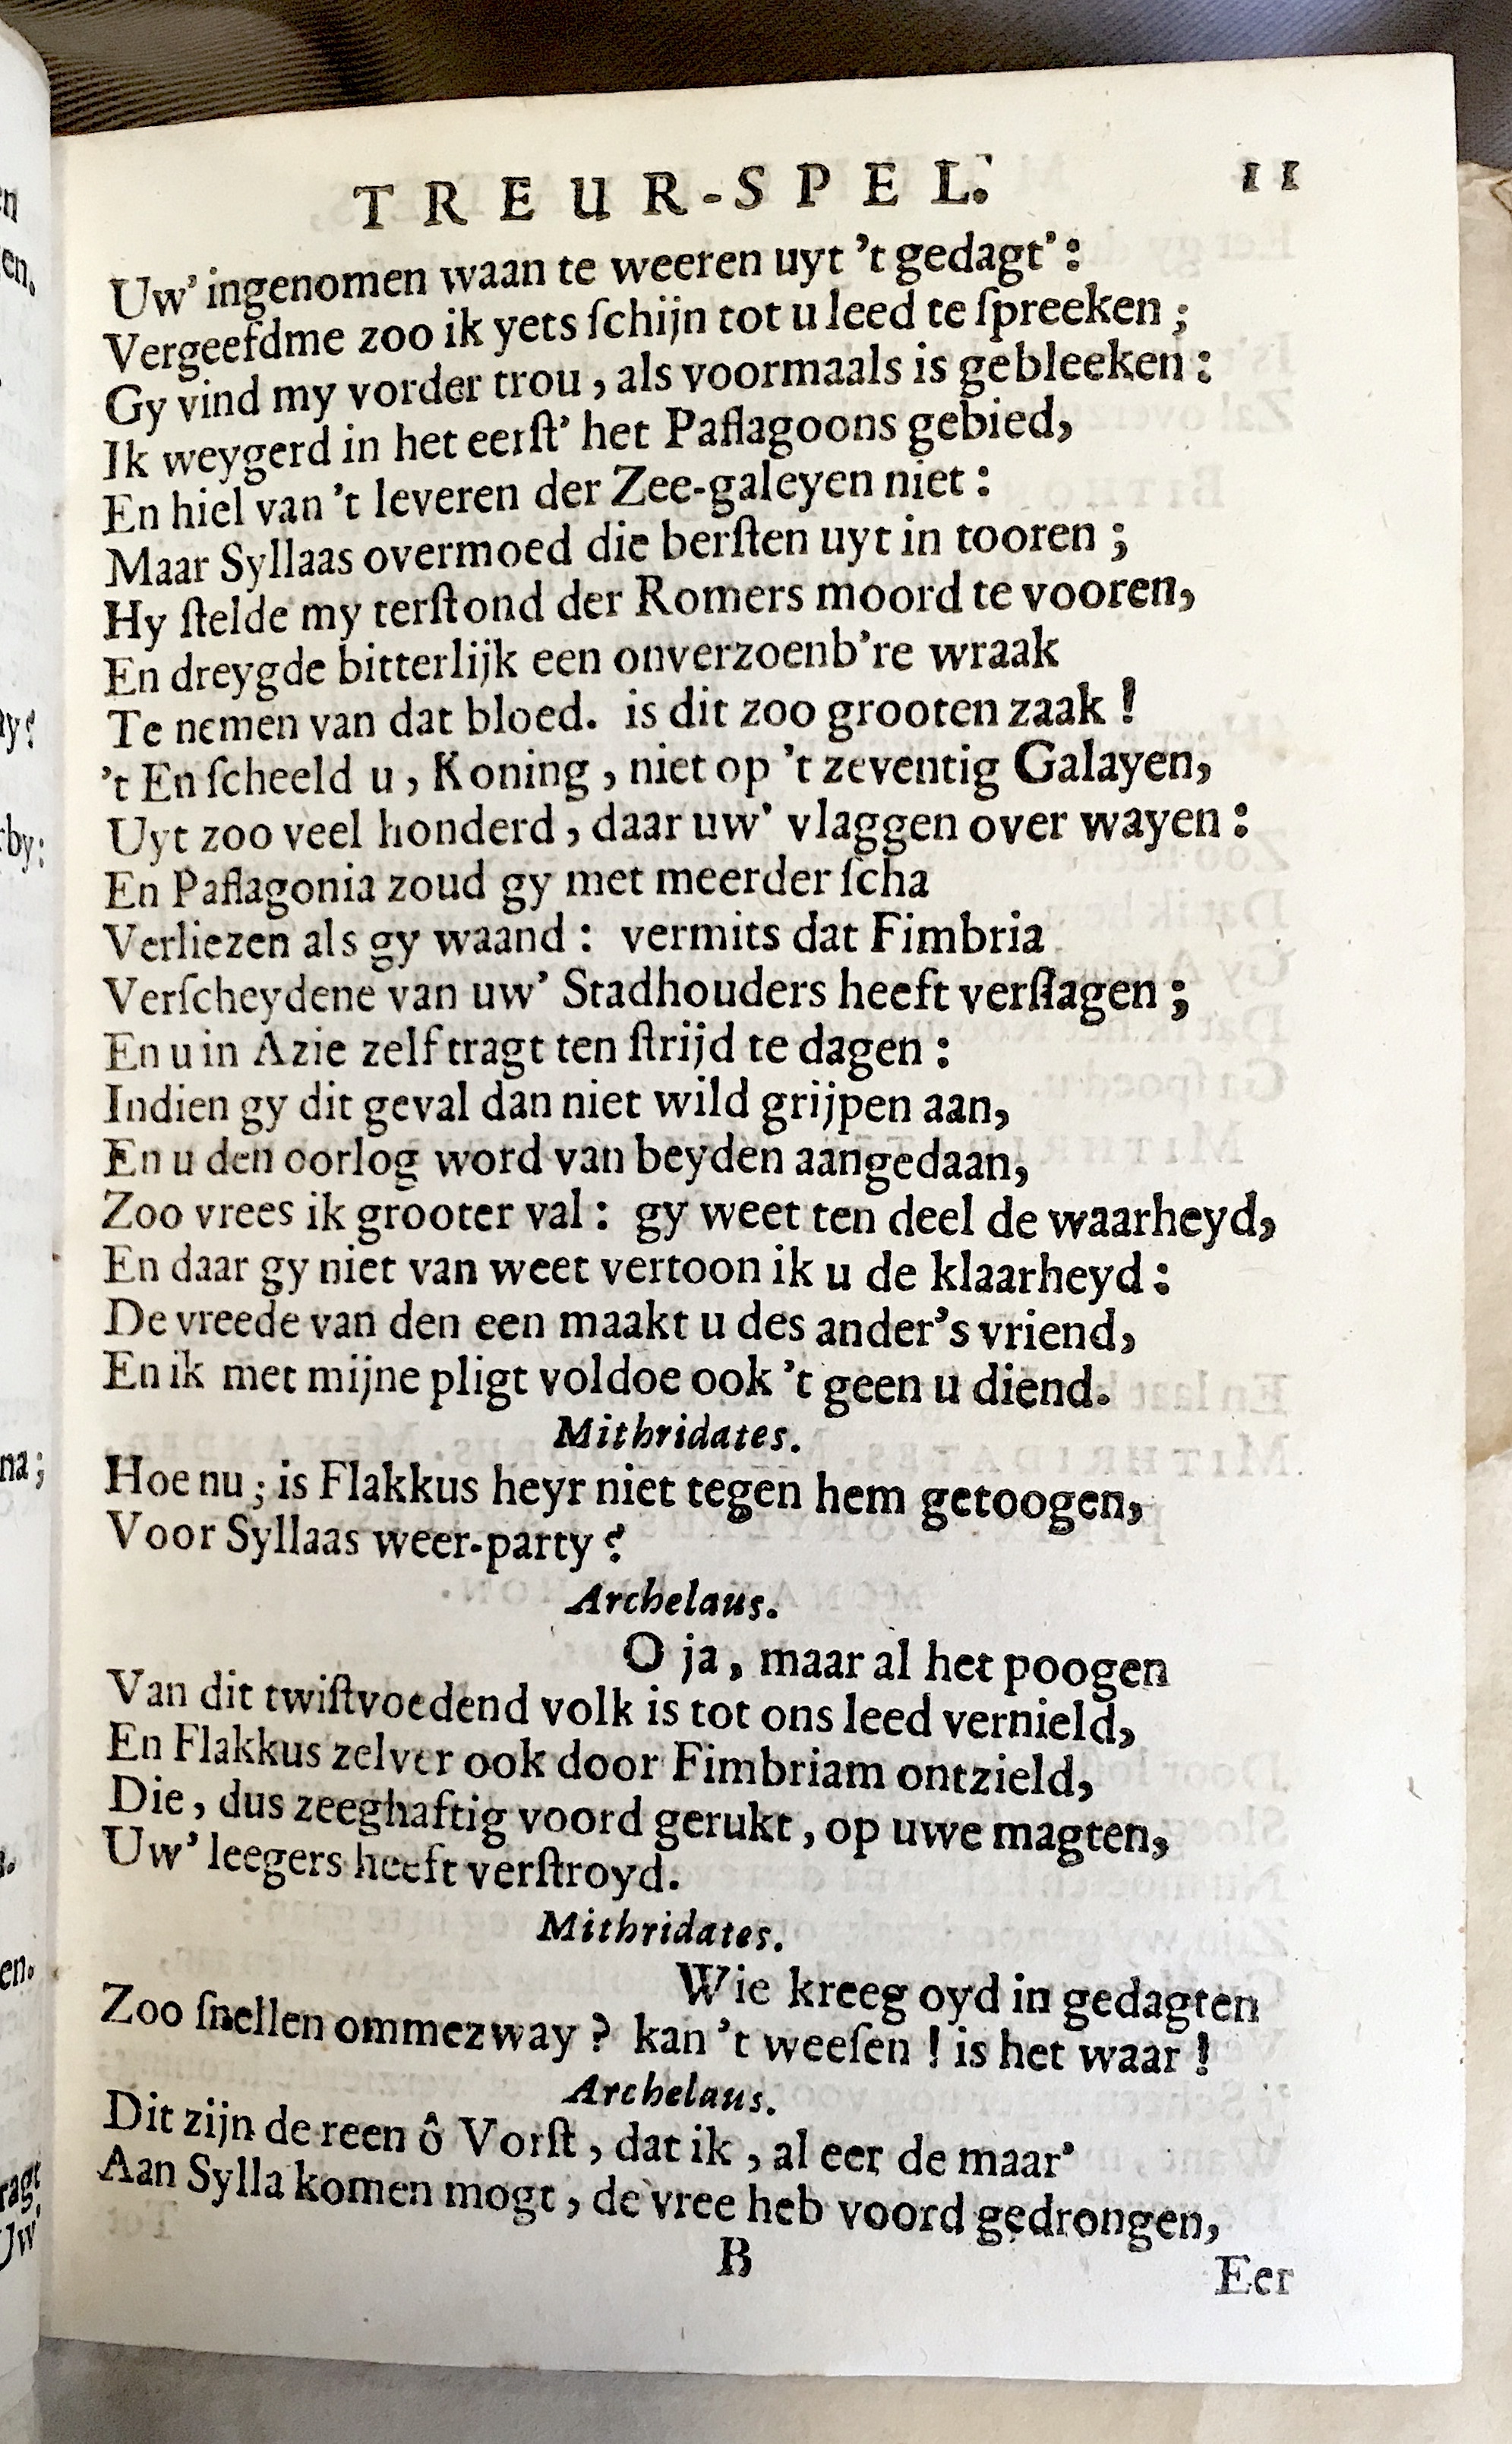 TREUR-SPEL. 11
Uw' ingenomen waan te weeren uyt 't gedagt':
Vergeefdme zoo ik yets ſchijn tot u leed te ſpreeken;
Gy vind my vorder trou, als voormaals is gebleeken:
Ik weygerd in het eerſt' het Paflagoons gebied,
En hiel van 't leveren der Zee-galeyen niet:
Maar Syllaas overmoed die berſten uyt in tooren;
Hy ſtelde my terſtond der Romers moord te vooren,
En dreygde bitterlijk een onverzoenb're wraak
Te nemen van dat bloed. is dit zoo grooten zaak!
't En ſcheeld u, Koning, niet op 't zeventig Galayen,
Uyt zoo veel honderd, daar uw' vlaggen over wayen:
En Paflagonia zoud gy met meerder ſcha
Verliezen als gy waand: vermits dat Fimbria
Verſcheydene van uw' Stadhouders heeft verſlagen;
En u in Azie zelf tragt ten ſtrijd te dagen:
Indien gy dit geval dan niet wild grijpen aan,
En u den oorlog word van beyden aangedaan,
Zoo vrees ik grooter val: gy weet ten deel de waarheyd,
En daar gy niet van weet vertoon ik u de klaarheyd:
De vreede van den een maakt u des ander's vriend,
En ik met mijne pligt voldoe ook 't geen u diend.
Mithridates.
Hoe nu; is Flakkus heyr niet tegen hem getoogen,
Voor Syllaas weer-party?
Archelaus.
O ja, maar al het poogen
Van dit twiſtvoedend volk is tot ons leed vernield,
En Flakkus zelver ook door Fimbriam ontzield,
Die, dus zeeghaftig voord gerukt, op uwe magten,
Uw' leegers heeft verſtroyd.
Mithridates.
Wie kreeg oyd in gedagten
Zoo ſnellen ommezway? kan 't weeſen! is het waar!
Archelaus.
Dit zijn de reen ô Vorſt, dat ik, al eer de maar'
Aan Sylla komen mogt, de vree heb voord gedrongen,
B
Eer